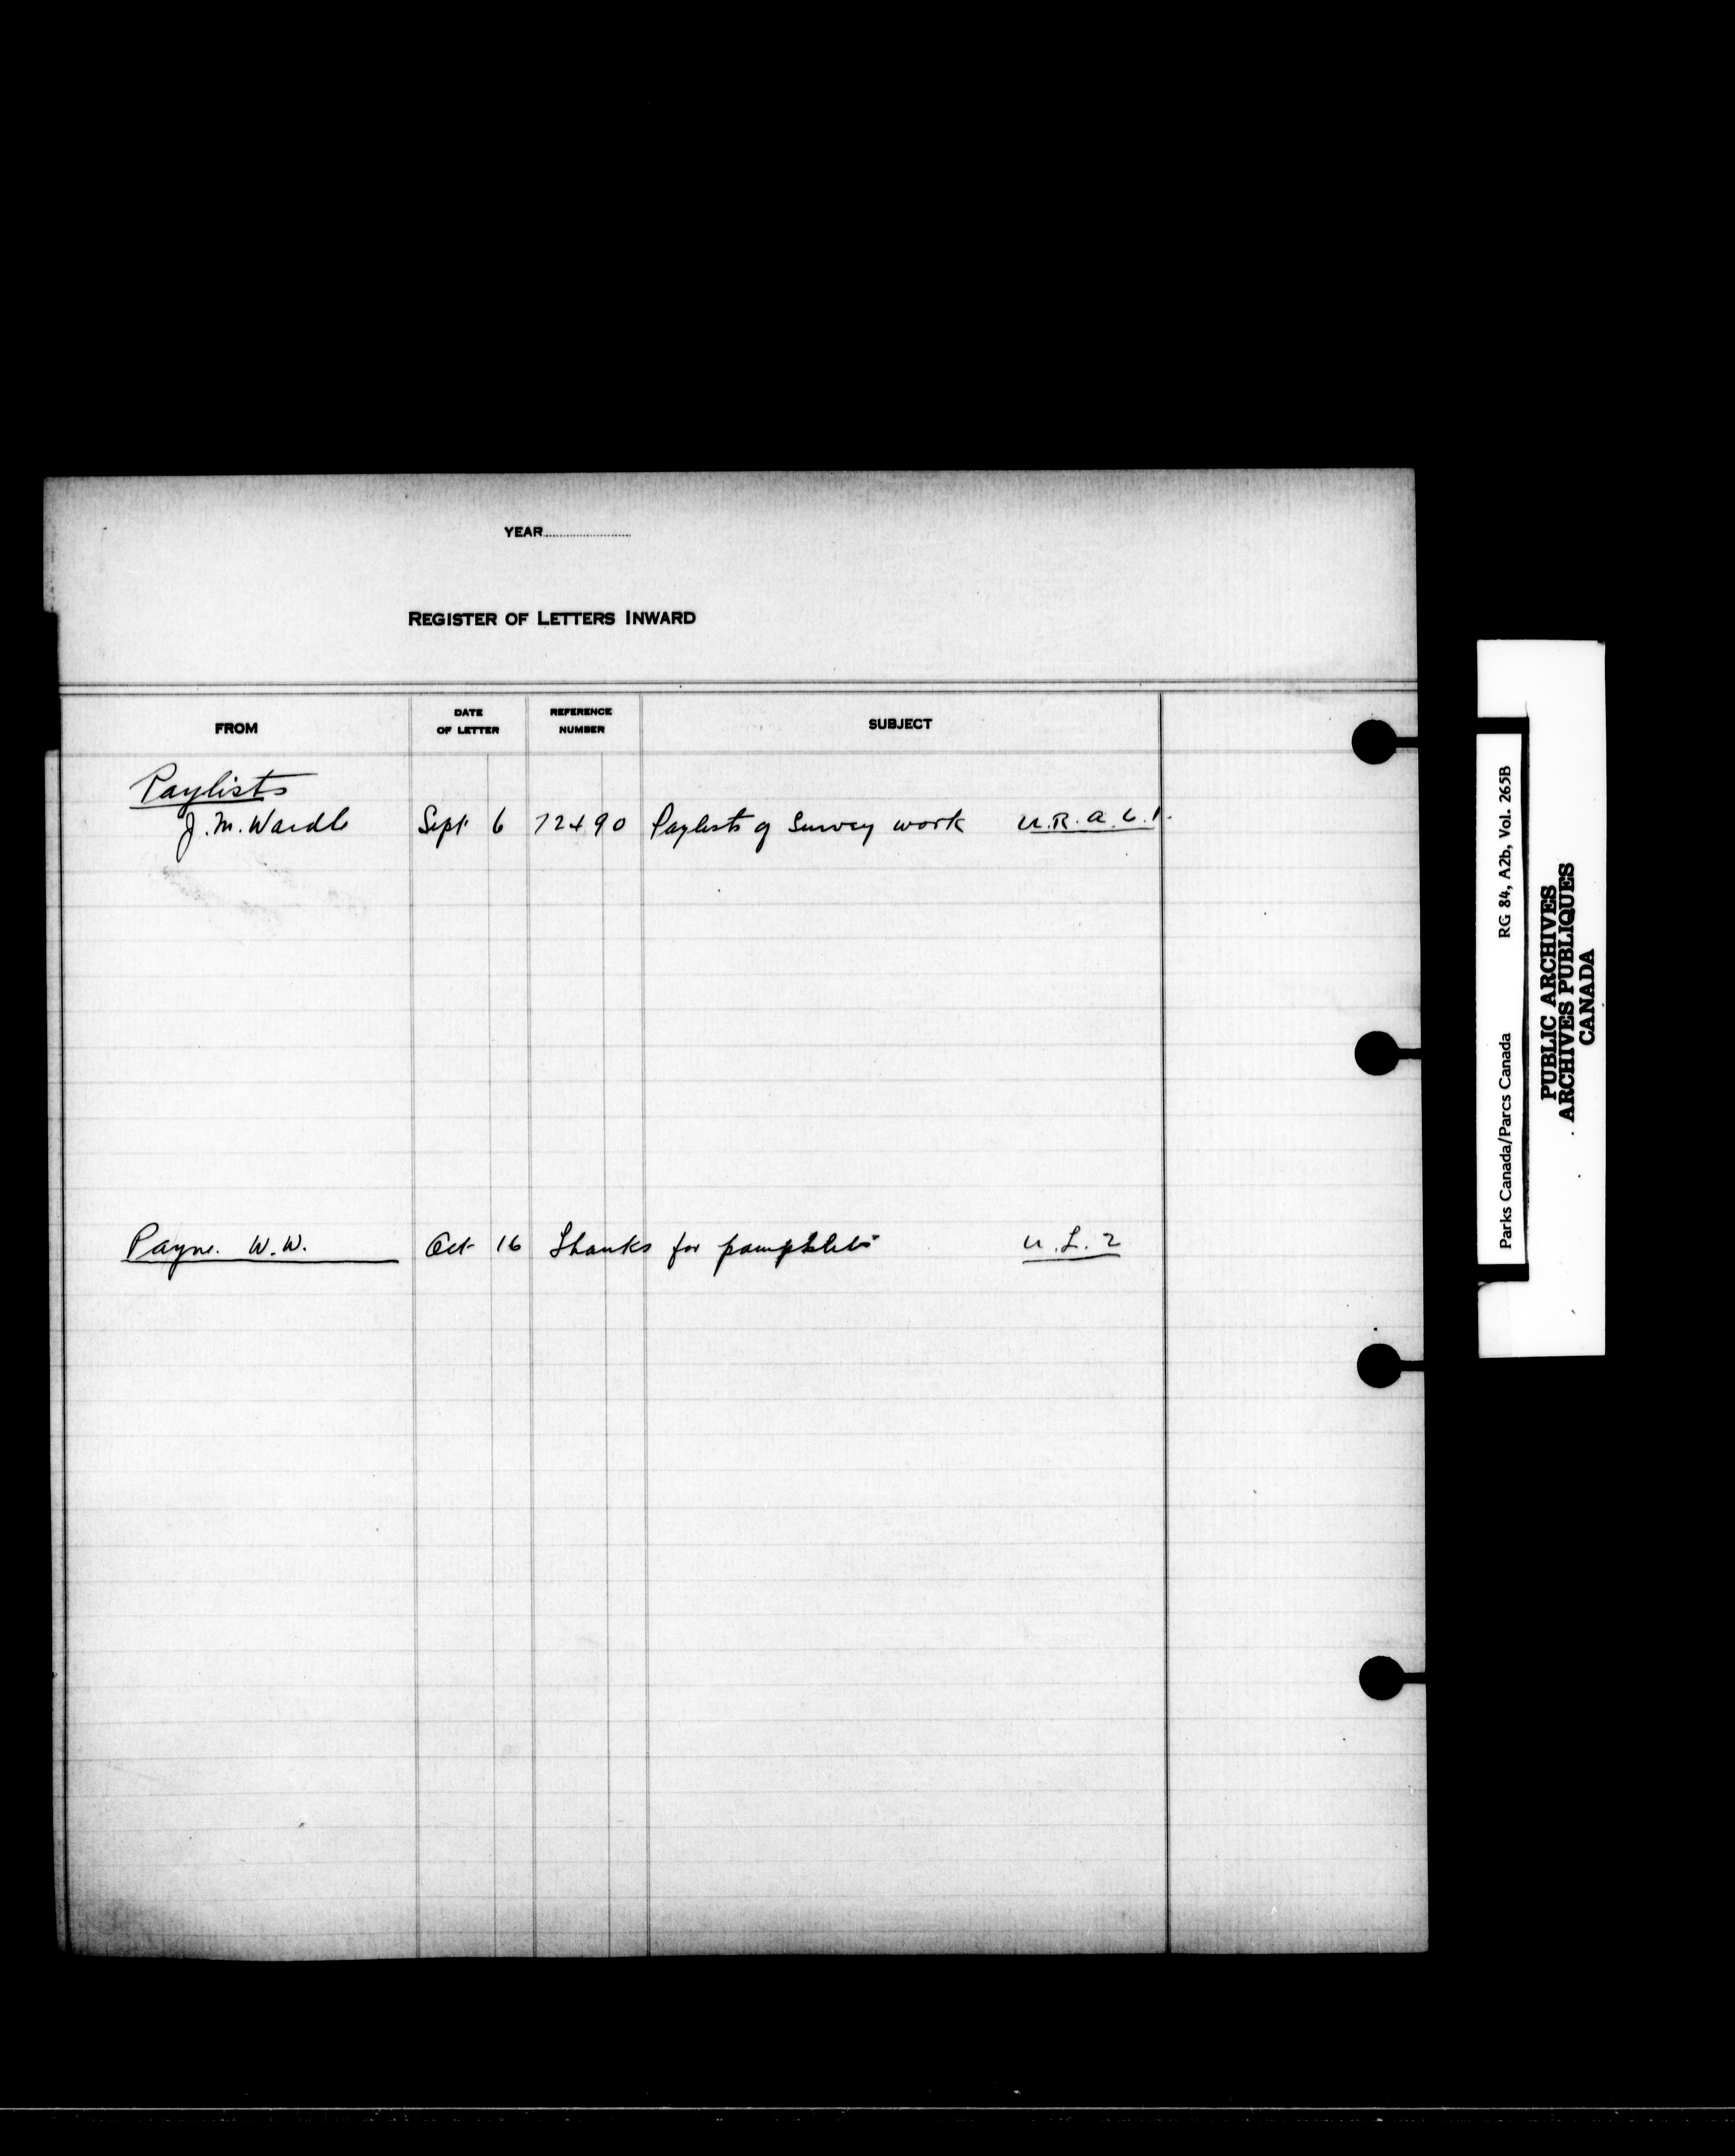 YEAR
REGISTER OF LETTERS INWARD
FROM DATE OF LETTER REFERENCE NUMBER SUBJECT
Paylists
J. M. Wardle Sept 6 72490 Paylists of Survey work U.R.a.6.1.
Payne. W.W. Oct 16 Thanks for pamphlets U.L.2
Parks Canada/Parcs Canada RG 84, A2b, Vol. 265B
PUBLIC ARCHIVES
ARCHIVES PUBLIQUES
CANADA